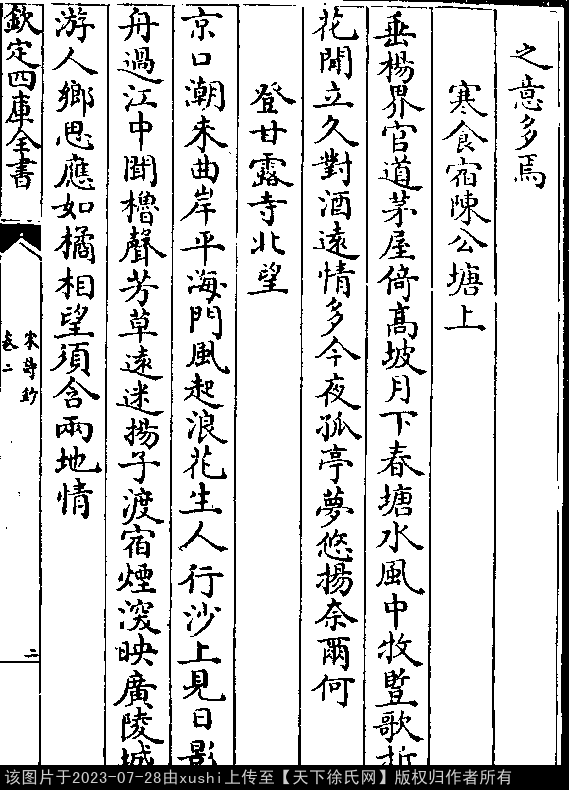 之意多焉
寒食宿陳公塘上
垂楊界官道茅屋倚髙坡月下春塘水風中牧豎歌折
花閒立久對酒遠情多今夜孤亭夢悠揚奈爾何
登甘露寺北望
京口潮来曲岸平海門風起浪花生人行沙上見日影
舟過江中聞櫓聲芳草遠迷揚子渡宿煙深映廣陵城
游人鄉思應如橘相望須含兩地情
欽定四庫全書
宋詩鈔
卷二
二
该图片于2023-07-28由xushi上传至【天下徐氏网】版权归作者所有